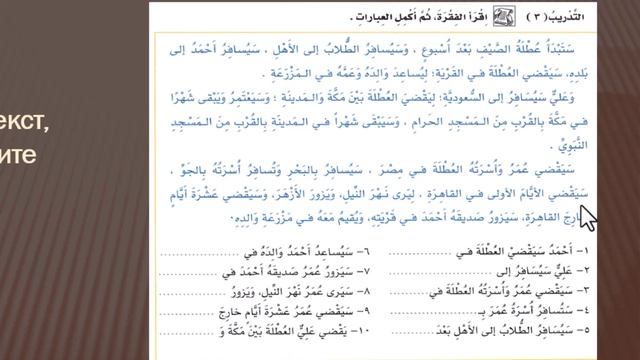 екст,
ите
التَّدْرِيبُ ( ٣ ) اِقْرَأِ الفِقْرَةَ، ثُمَّ أَكْمِلِ العِبارَاتِ .
سَتَبْدَأُ عُطْلَةُ الصَّيْفِ بَعْدَ أُسْبوعٍ ، وَسَيُسافِرُ الطُّلابُ إلى الأَهْلِ ، سَيُسافِرُ أَحْمَدُ إلى
بَلَدِهِ، سَيَقْضي العُطْلَةَ في القَرْيَةِ؛ لِيُساعِدَ وَالِدَهُ وَعَمَّهُ في المَزْرَعَةِ .
وَعَلِيٌّ سَيُسافِرُ إلى السُّعودِيَّةِ؛ لِيَقْضيَ العُطْلَةَ بَيْنَ مَكَّةَ وَالمَدينَةِ ؛ وَسَيَعْتَمِرُ وَيَبْقى شَهْرًا
في مَكَّةَ بِالقُرْبِ مِنَ المَسْجِدِ الحَرامِ ، وَسَيَبْقى شَهْراً في المَدينَةِ بِالقُرْبِ مِنَ المَسْجِدِ
النَّبَوِيِّ .
سَيَقْضي عُمَرُ وَأُسْرَتُهُ العُطْلَةَ في مِصْرَ ، سَيُسافِرُ بِالبَحْرِ وَتُسافِرُ أُسْرَتُهُ بِالجَوِّ ،
سَيَقْضي الأَيَّامَ الأولى في القاهِرَةِ ، لِيَرى نَهْرَ النِّيلِ، وَيَزورَ الأَزْهَرَ، وَسَيَقْضي عَشْرَةَ أَيَّامٍ
خارِجَ القاهِرَةِ، سَيَزورُ صَديقَهُ أَحْمَدَ في قَرْيَتِهِ، وَيُقيمُ مَعَهُ في مَزْرَعَةِ وَالِدِهِ.
١- أَحْمَدُ سَيَقْضيْ العُطْلَةَ في ............... ٦- سَيُساعِدُ أَحْمَدُ وَالِدَهُ في ...............
٢- عَلِيٌّ سَيُسافِرُ إلى ............... ٧- سَيَزورُ عُمَرُ صَديقَهُ أَحْمَدَ في ...............
٣- سَيَقْضي عُمَرُ وَأُسْرَتُهُ العُطْلَةَ في ............... ٨- سَيَرى عُمَرُ نَهْرَ النِّيلِ، وَيَزورُ ...............
٤- سَتُسافِرُ أُسْرَةُ عُمَرَ بِـ ............... ٩- سَيَقْضي عُمَرُ عَشْرَةَ أَيَّامٍ خارِجَ ...............
٥- سَيُسافِرُ الطُّلابُ إلى الأَهْلِ بَعْدَ ............... ١٠- يَقْضي عَلِيٌّ العُطْلَةَ بَيْنَ مَكَّةَ وَ ...............